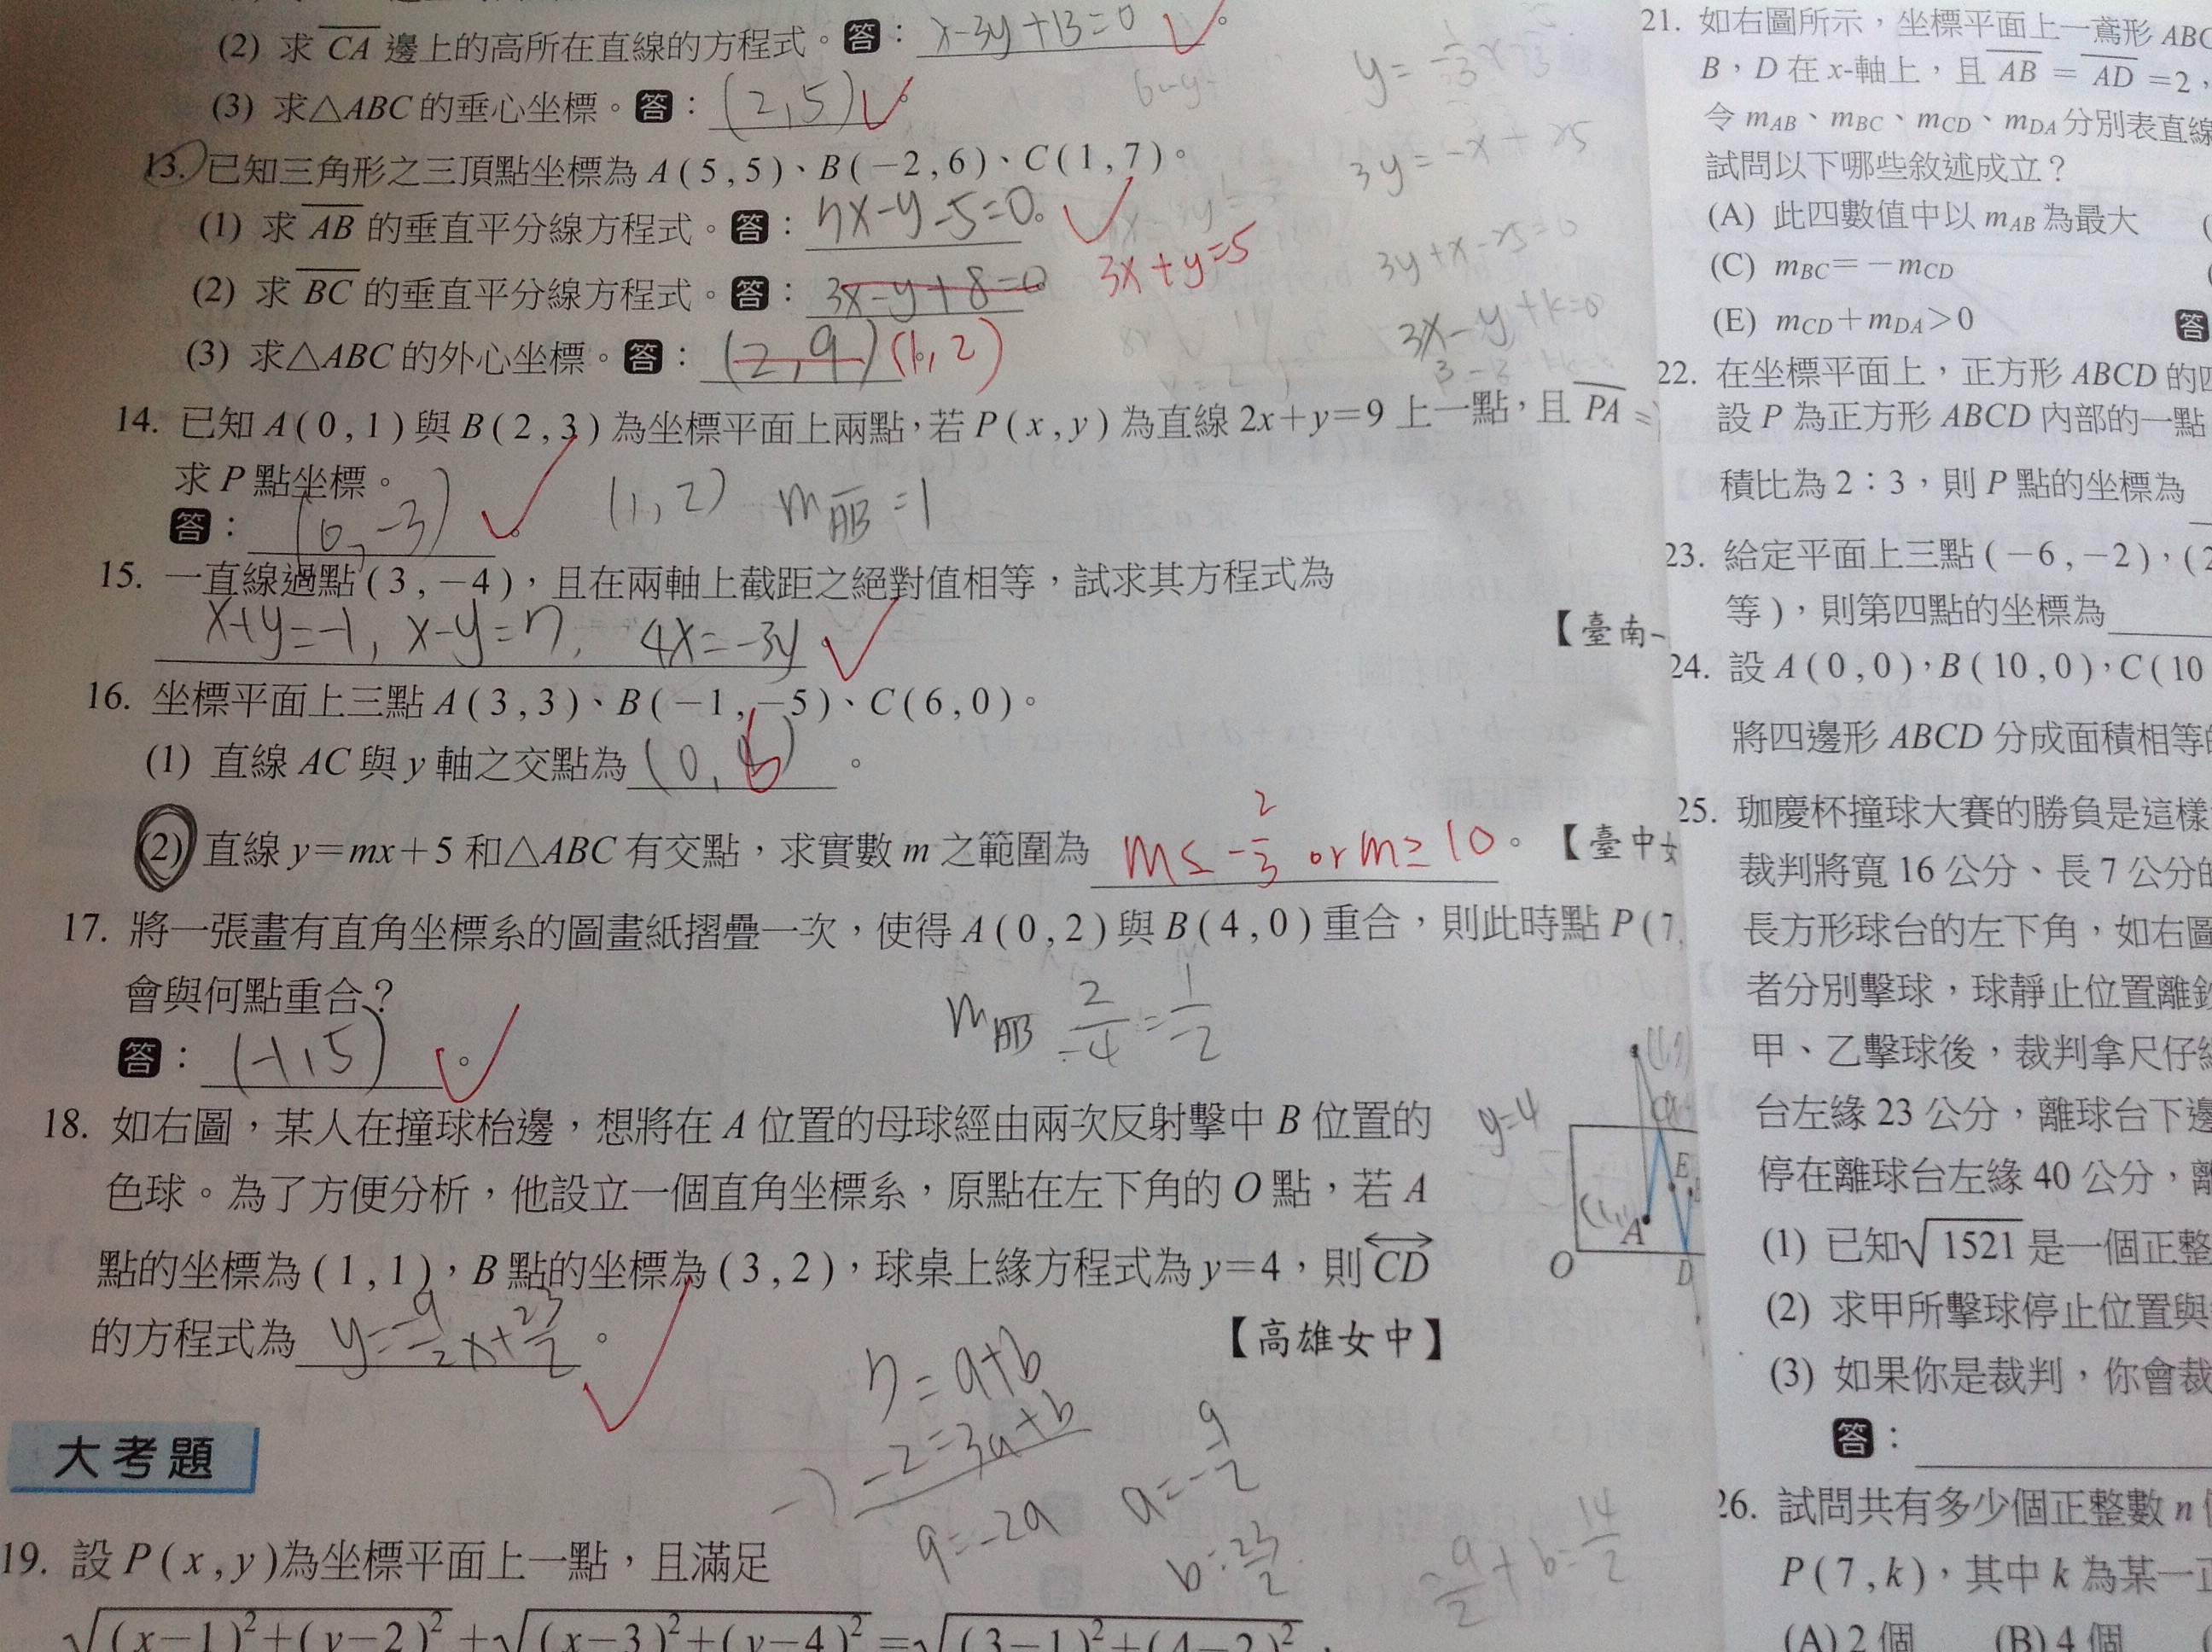 (2) 求 CA 邊上的高所在直線的方程式。答：x-3y+13=0。
(3) 求△ABC 的垂心坐標。答：(2,5)。
13. 已知三角形之三頂點坐標為 A(5,5)、B(-2,6)、C(1,7)。
(1) 求 AB 的垂直平分線方程式。答：7x-y-5=0。
(2) 求 BC 的垂直平分線方程式。答：3x-y+8=0 3x+y=5
(3) 求△ABC 的外心坐標。答：(2,9) (1,2)
14. 已知 A(0,1)與 B(2,3)為坐標平面上兩點，若 P(x,y)為直線 2x+y=9 上一點，且 PA =
求 P 點坐標。
答：(6,-3)。
(1,2) mAB=1
15. 一直線過點(3,-4)，且在兩軸上截距之絕對值相等，試求其方程式為
x+y=-1, x-y=7, 4x=-3y。
【臺南一
16. 坐標平面上三點 A(3,3)、B(-1,-5)、C(6,0)。
(1) 直線 AC 與 y 軸之交點為(0,6)。
(2) 直線 y=mx+5 和△ABC 有交點，求實數 m 之範圍為 m≤-2/3 or m≥10。【臺中女
17. 將一張畫有直角坐標系的圖畫紙摺疊一次，使得 A(0,2)與 B(4,0)重合，則此時點 P(7,
會與何點重合？
mAB 2/-4=1/-2
答：(-1,5)。
18. 如右圖，某人在撞球枱邊，想將在 A 位置的母球經由兩次反射擊中 B 位置的
色球。為了方便分析，他設立一個直角坐標系，原點在左下角的 O 點，若 A
點的坐標為(1,1)，B 點的坐標為(3,2)，球桌上緣方程式為 y=4，則 CD
的方程式為 y=-9/2x+23/2。
【高雄女中】
7=a+b
-2=3a+b
9=-2a
a=-9/2
b=23/2
-9/2+b=14/2
y=4
(1,7)
C
E
(1,1)
A
O
D
大考題
19. 設 P(x,y)為坐標平面上一點，且滿足
√(x-1)²+(y-2)² +√(x-3)²+(y-4)² =√(3-1)²+(4-2)²，
y=-1/3x
3y=-x+25
3y+x-25=0
3x-y+k=0
21. 如右圖所示，坐標平面上一鳶形 ABC
B，D 在 x-軸上，且 AB = AD =2，
令 mAB、mBC、mCD、mDA 分別表直線
試問以下哪些敘述成立？
(A) 此四數值中以 mAB 為最大
(C) mBC=-mCD
(E) mCD+mDA>0
答
22. 在坐標平面上，正方形 ABCD 的四
設 P 為正方形 ABCD 內部的一點
積比為 2：3，則 P 點的坐標為
23. 給定平面上三點(-6,-2)，(2
等)，則第四點的坐標為
24. 設 A(0,0)，B(10,0)，C(10
將四邊形 ABCD 分成面積相等的
25. 珈慶杯撞球大賽的勝負是這樣
裁判將寬 16 公分、長 7 公分的
長方形球台的左下角，如右圖
者分別擊球，球靜止位置離鈔
甲、乙擊球後，裁判拿尺仔細
台左緣 23 公分，離球台下邊
停在離球台左緣 40 公分，離
(1) 已知√1521 是一個正整
(2) 求甲所擊球停止位置與
(3) 如果你是裁判，你會裁
答：
26. 試問共有多少個正整數 n 
P(7,k)，其中 k 為某一正
(A) 2 個 (B) 4 個